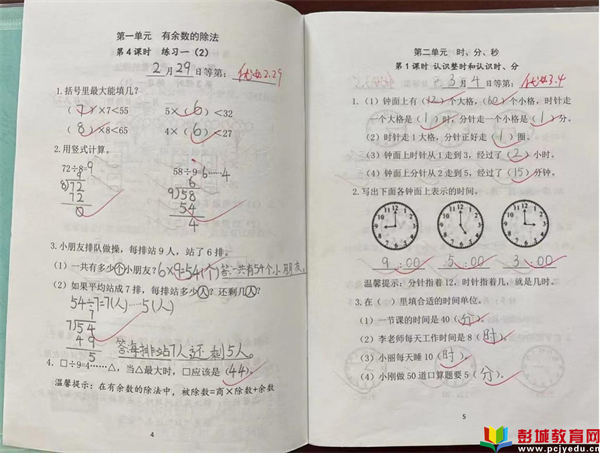 第一单元 有余数的除法
第4课时 练习一(2)
2月29日等第:优 2.29
1.括号里最大能填几?
(7)×7<55 5×(6)<32
(8)×8<65 4×(6)<27
2.用竖式计算。
72÷8=9 58÷9=6……4
9 6
8)72 9)58
72 54
0 4
3.小朋友排队做操,每排站9人,站了6排。
(1)一共有多少个小朋友?6×9=54(个)答:一共有54个小朋友。
(2)如果平均站成7排,每排站多少人?还剩几人?
54÷7=7(人)……5(人)
7
7)54
49
5
答:每排站7人还剩5人。
4.□÷9=4……△,当△最大时,□应是(44)。
温馨提示:在有余数的除法中,被除数=商×除数+余数
4
第二单元 时、分、秒
第1课时 认识整时和认识时、分
3月4日等第:优 3.4
1.(1)钟面上有(12)个大格,(60)个小格,时针走
一个大格是(1)时,分针走一个小格是(1)分。
(2)时针走1大格,分针正好走(1)圈。
(3)钟面上时针从1走到3,经过了(2)小时。
(4)钟面上分针从2走到5,经过了(15)分钟。
2.写出下面各钟面上表示的时间。
9:00 5:00 3:00
温馨提示:分针指着12,时针指着几,就是几时。
3.在( )里填合适的时间单位。
(1)一节课的时间是40(分)。
(2)李老师每天工作时间是8(时)。
(3)小丽每天睡10(时)。
(4)小刚做50道口算题要5(分)。
5
彭城教育网
www.pcjyedu.cn